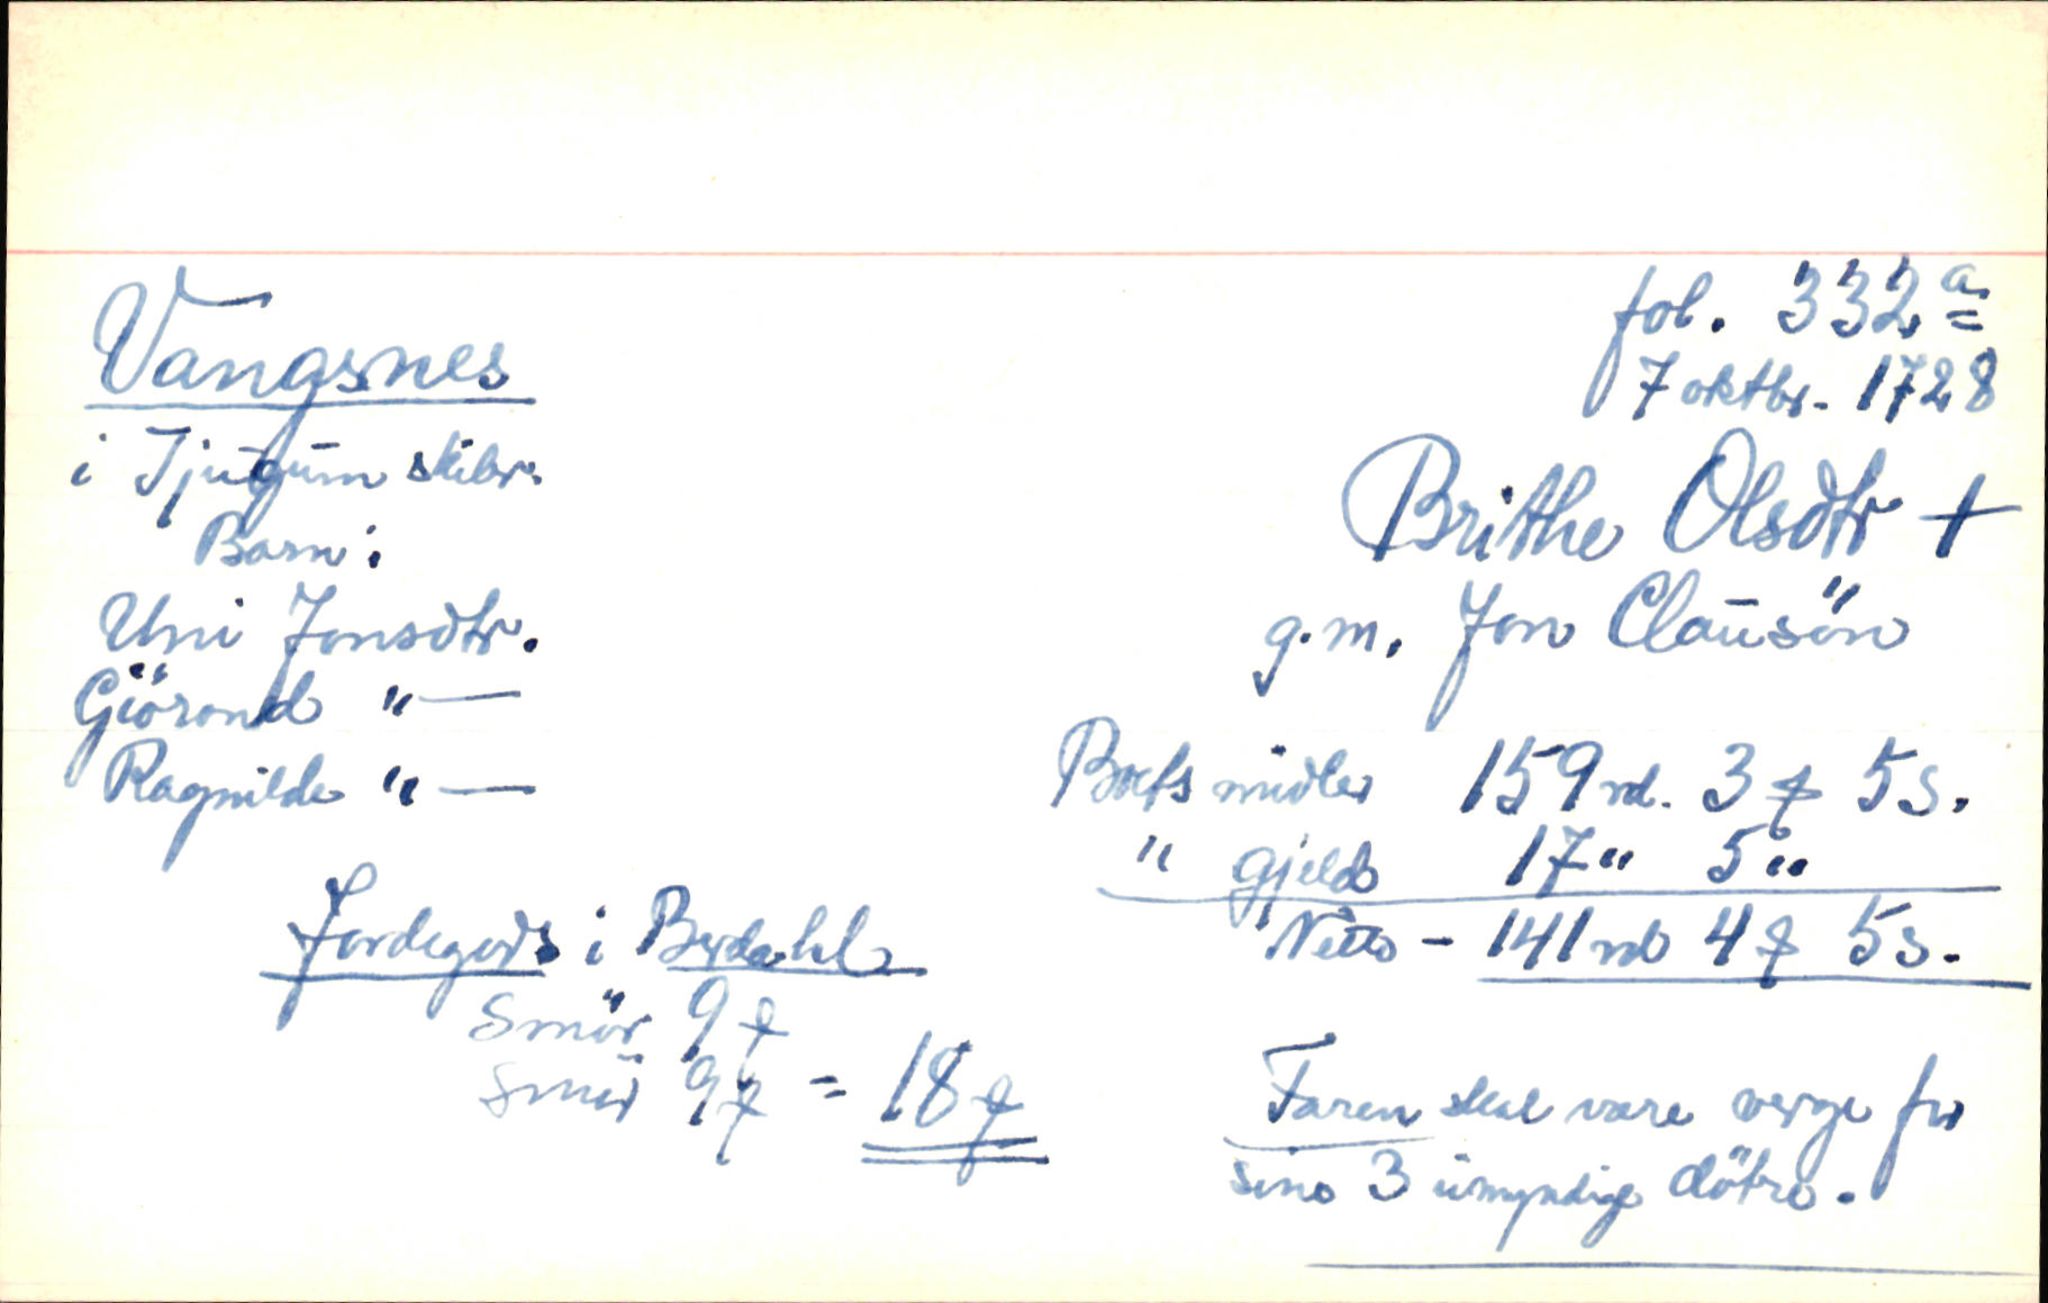 Vangsnes
i Tjugum skibr.
Barn:
Uni Jonsdtr.
Giörond "—
Ragnilde "—
Jordegods i Berdahl
Smör 9
Smör 9 = 18
fol. 332a
7 oktbr. 1728
Brithe Olsdtr +
g.m. Jon Clausön
Boets midler 159 rd. 3 5 s.
" gjeld 17 " 5 "
Netto - 141 rd 4 5 s.
Faren skal være verge for
sine 3 umyndige dötre.